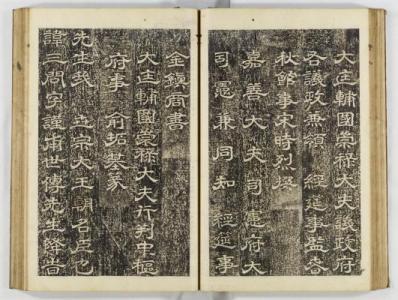 大匡輔國崇祿大夫議政府
右議政兼領 經筵事監春
秋館事宋時烈撰
嘉善大夫司憲府大
司憲兼同知 經筵事
金鎭商書
大匡輔國崇祿大夫行判中樞
府事 兪拓基篆
先生我 世宗大王朝名臣也
諱三問字謹甫世傳先生降旹